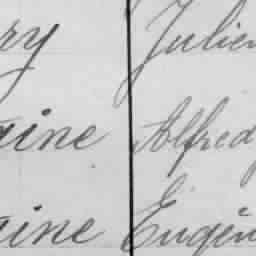 ry Julien
aine Alfred
aine Eugèn